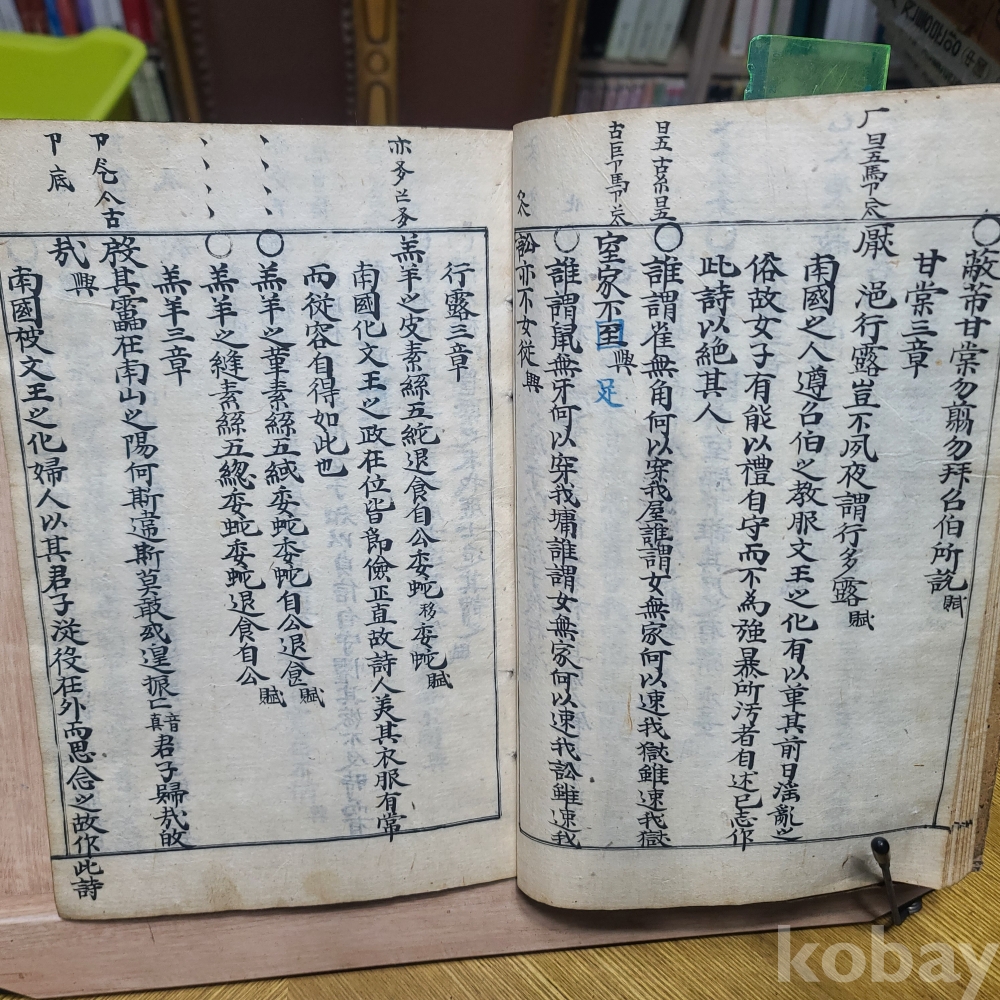 ○蔽芾甘棠勿翦勿拜召伯所說賦
甘棠三章
厭浥行露豈不夙夜謂行多露賦
南國之人遵召伯之敎服文王之化有以革其前日淫亂之
俗故女子有能以禮自守而不為强暴所汚者自述己志作
此詩以絶其人
○誰謂雀無角何以穿我屋誰謂女無家何以速我獄雖速我獄
室家不
興
足
○誰謂鼠無牙何以穿我墉誰謂女無家何以速我訟雖速我
訟亦不女從興
行露三章
羔羊之皮素絲五紽退食自公委蛇移委蛇賦
南國化文王之政在位皆節儉正直故詩人美其衣服有常
而從容自得如此也
○羔羊之革素絲五緎委蛇委蛇自公退食賦
○羔羊之縫素絲五總委蛇委蛇退食自公賦
羔羊三章
殷其靁在南山之陽何斯違斯莫敢或遑振〻音真君子歸哉歸
哉興
南國被文王之化婦人以其君子從役在外而思念之故作此詩
kobay